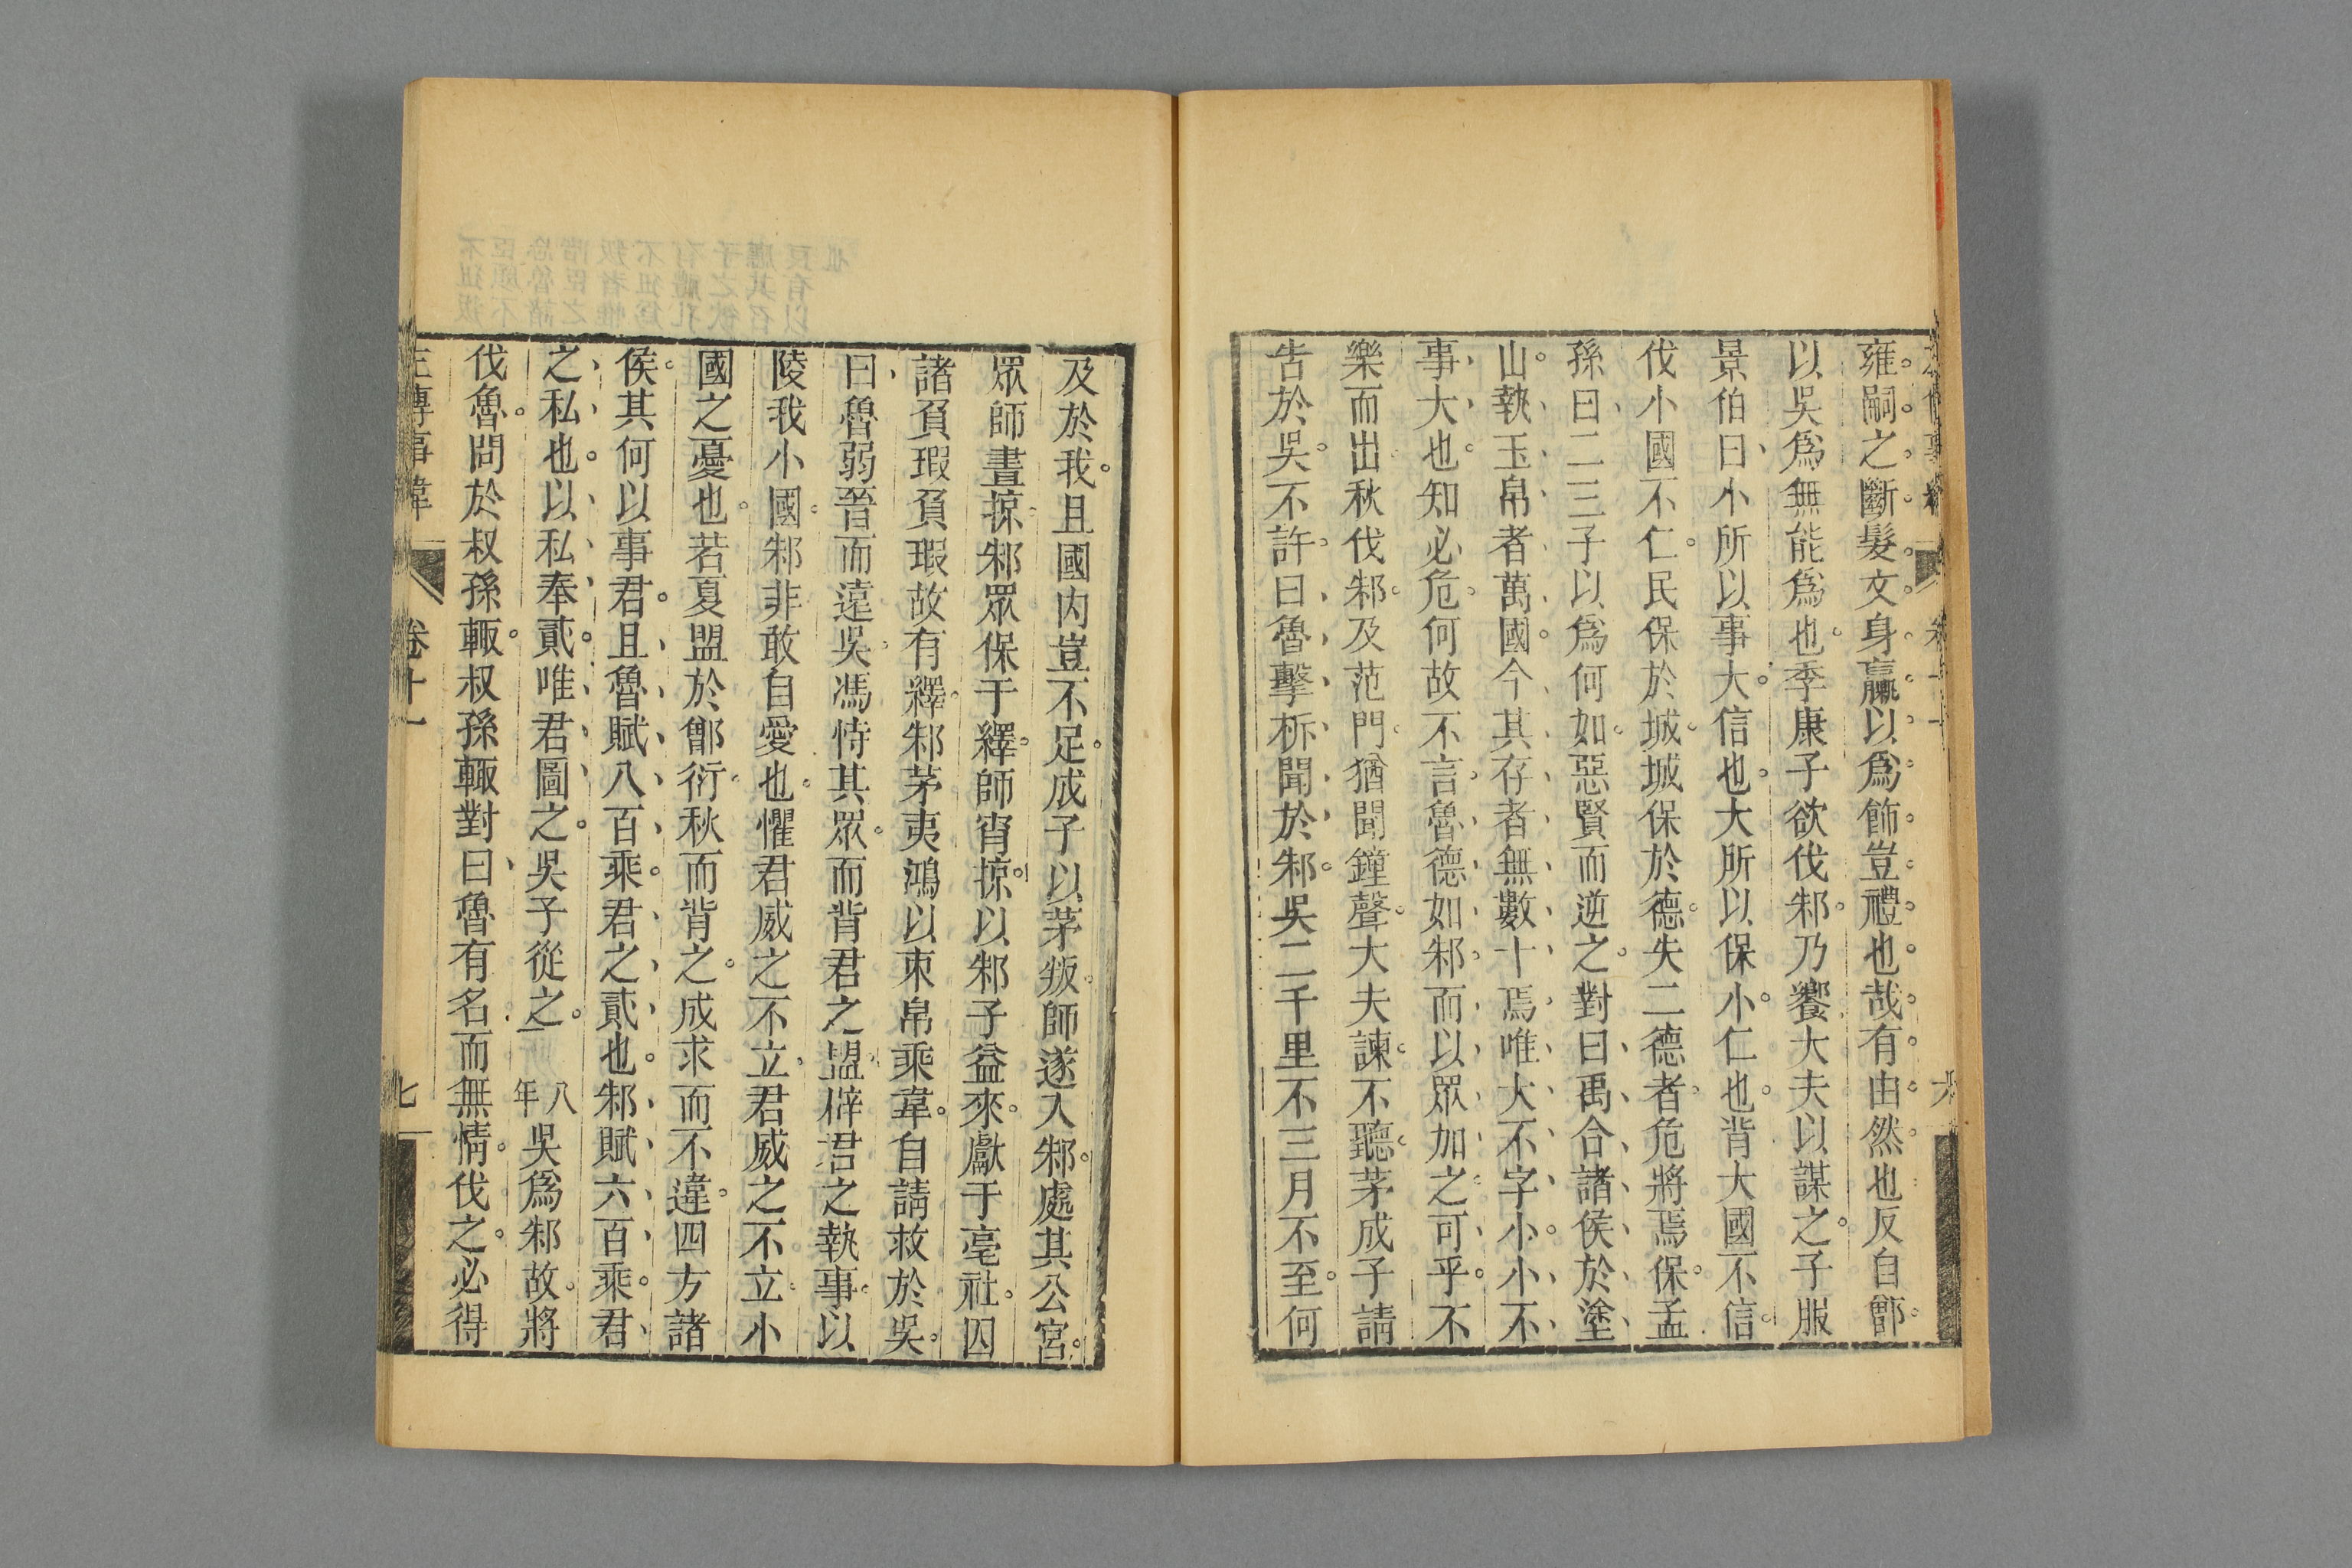 雍嗣之斷髮文身臝以爲飾豈禮也哉有由然也反自鄫
以吳爲無能爲也季康子欲伐邾乃饗大夫以謀之子服
景伯曰小所以事大信也大所以保小仁也背大國不信
伐小國不仁民保於城城保於德失二德者危將焉保孟
孫曰二三子以爲何如惡賢而逆之對曰禹合諸侯於塗
山執玉帛者萬國今其存者無數十焉唯大不字小小不
事大也知必危何故不言魯德如邾而以眾加之可乎不
樂而出秋伐邾及范門猶聞鐘聲大夫諫不聽茅成子請
告於吳不許曰魯擊柝聞於邾吳二千里不三月不至何
及於我且國內豈不足成子以茅叛師遂入邾處其公宮
眾師晝掠邾眾保于繹師宵掠以邾子益來獻于亳社囚
諸負瑕負瑕故有繹邾茅夷鴻以束帛乘韋自請救於吳
曰魯弱晉而遠吳馮恃其眾而背君之盟辟君之執事以
陵我小國邾非敢自愛也懼君威之不立君威之不立小
國之憂也若夏盟於鄫衍秋而背之成求而不違四方諸
侯其何以事君且魯賦八百乘君之貳也邾賦六百乘君
之私也以私奉貳唯君圖之吳子從之 八年 吳爲邾故將
伐魯問於叔孫輒叔孫輒對曰魯有名而無情伐之必得
左傳事緯 卷十一 七